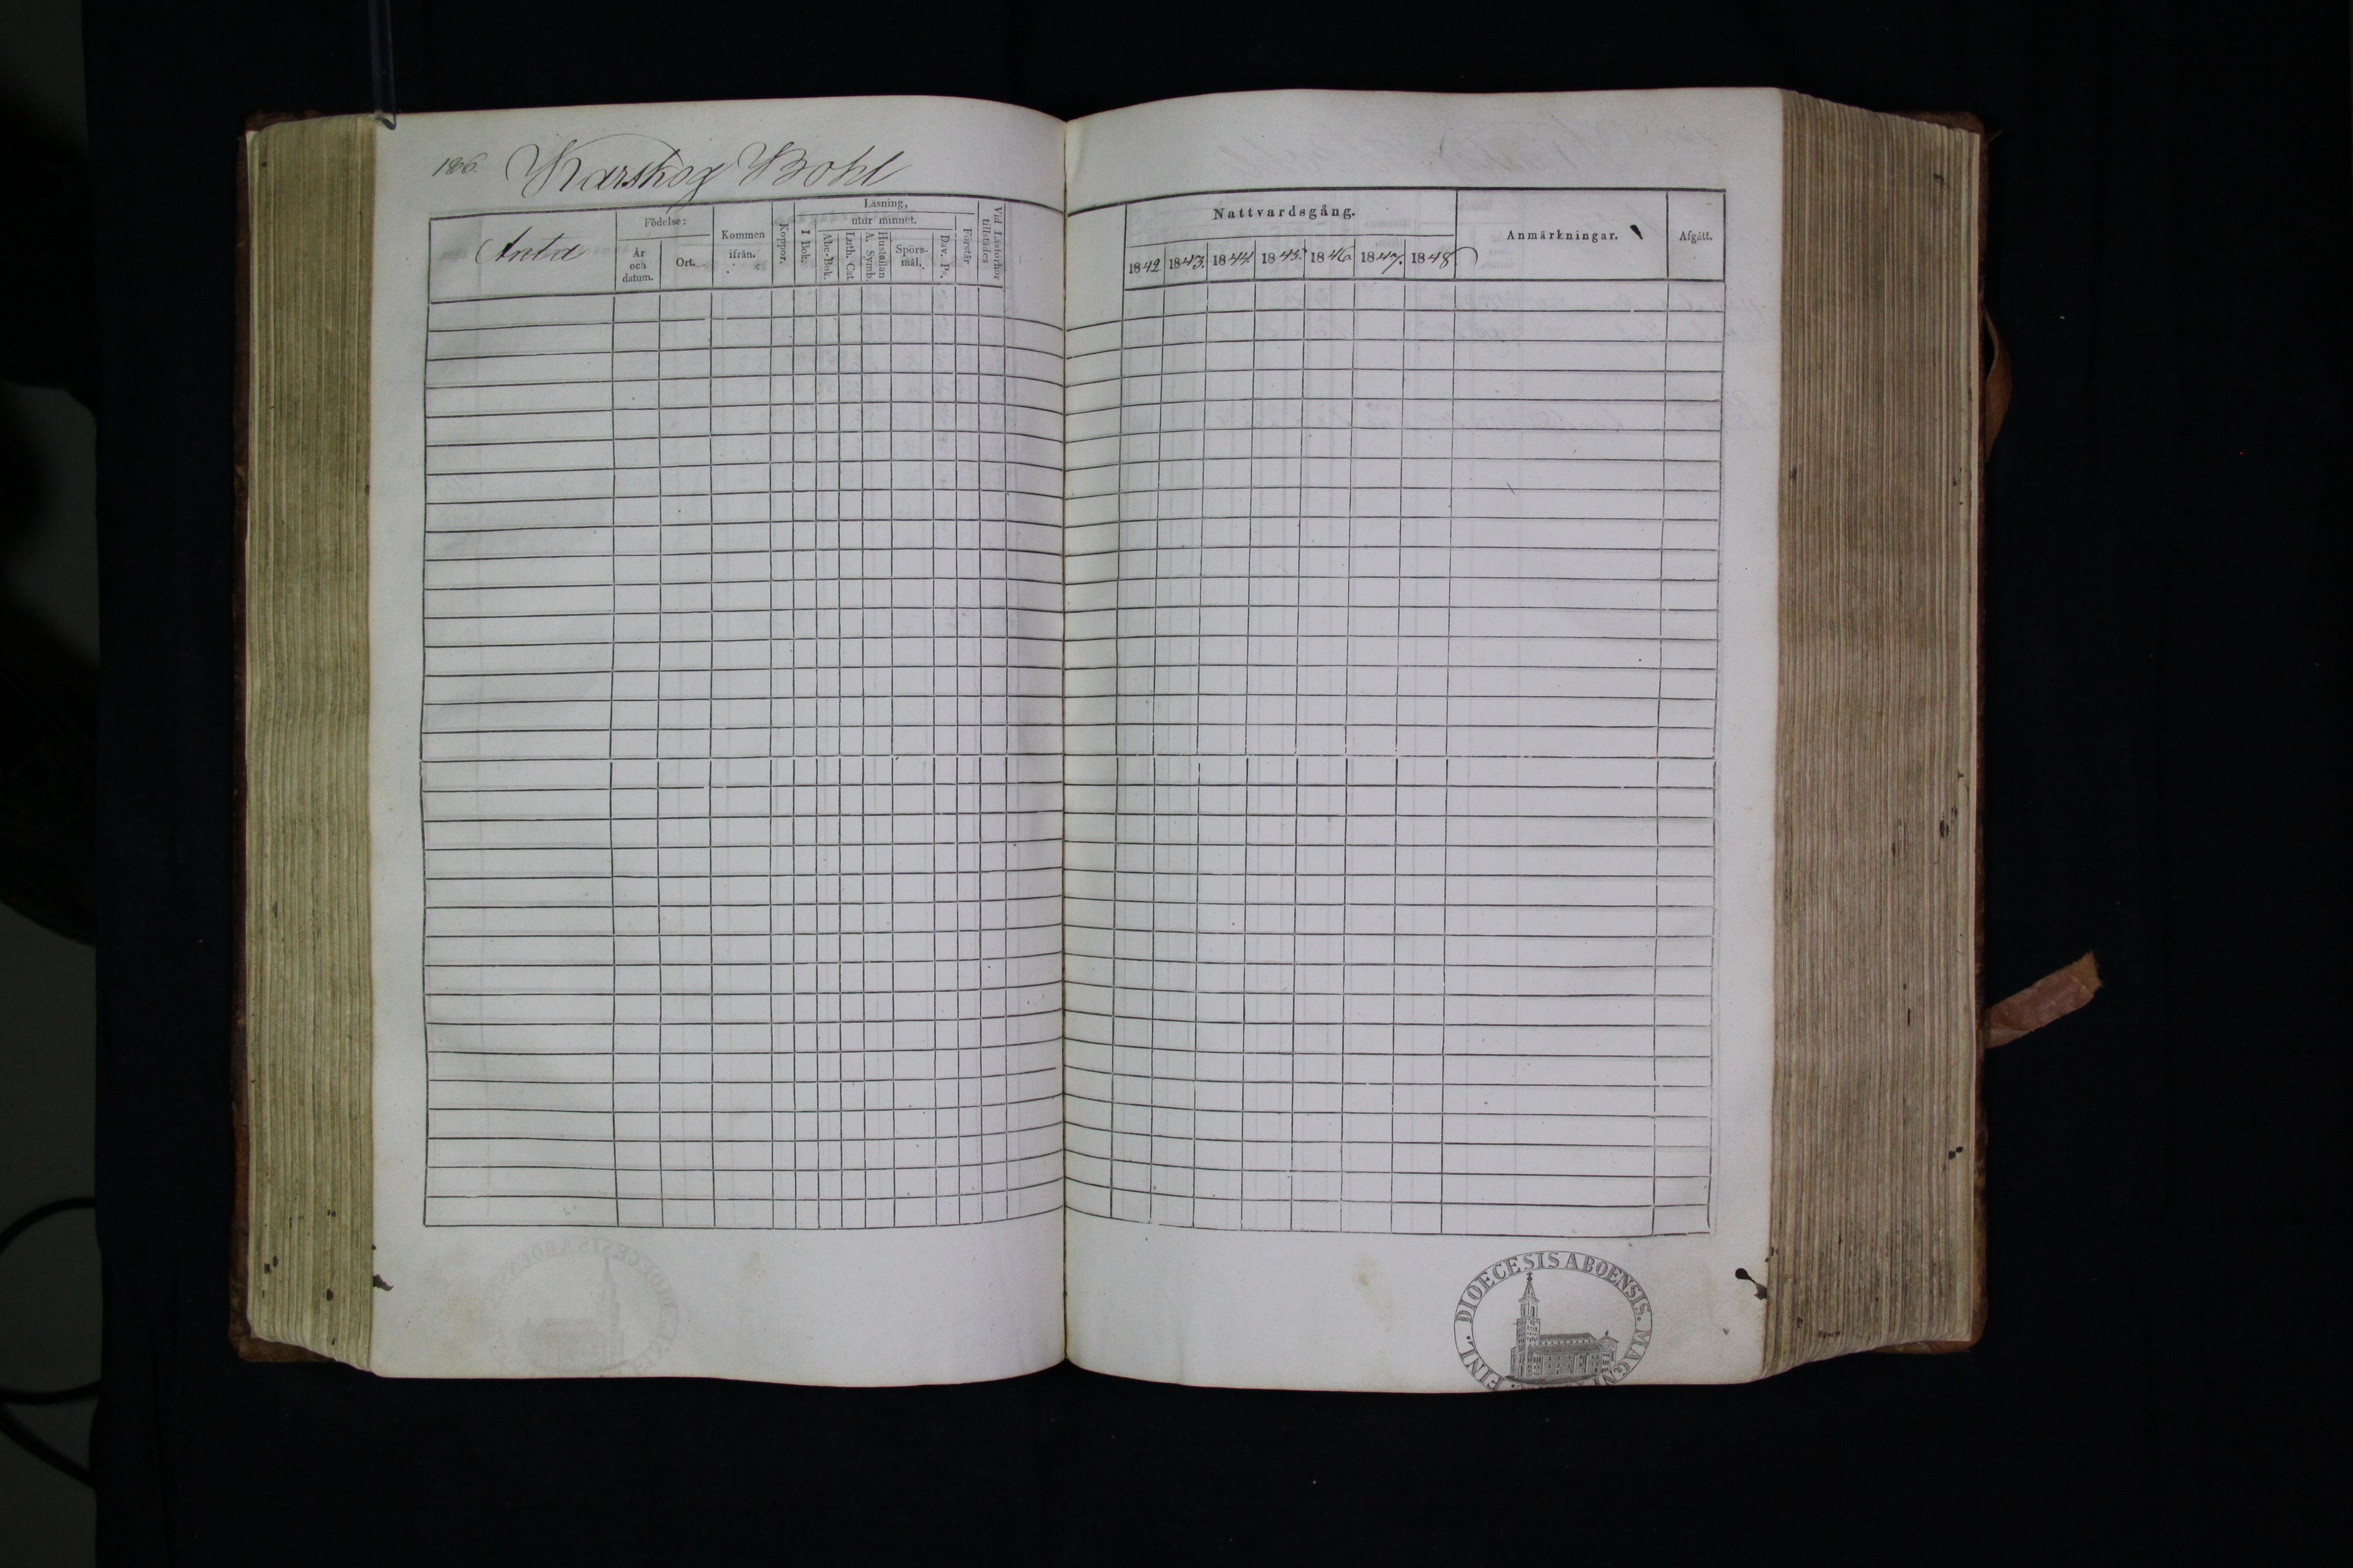 186. Karskog Bohl
Anta
Födelse:
År och datum.
Ort.
Kommen ifrån.
Koppor.
Läsning,
utur minnet.
I Bok.
Abc-Bok.
Luth. Cat.
Hustaflan
A. Symb.
Spörs-mål.
Dav. Ps.
Förstår
Vid Läsförhör tillstädes
Nattvardsgång.
1842 1843. 1844. 1845. 1846 1847. 1848
Anmärkningar.
Afgått.
FINL. DIOECESIS ABOENSIS. MAGNI